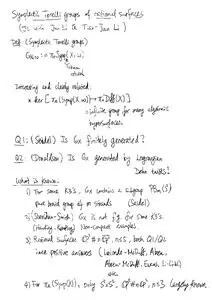 Symplectic Torelli groups of rational surfaces
(jt with Jun Li & Tian-Jun Li)
Def: (Symplectic Torelli group)
Interesting and closely related:
* ker [π₀(Symp(X,ω)) → π₀Diff(X)]
= infinite group for many algebraic
hypersurfaces.
Q1: (Seidel) Is Gx finitely generated?
Q2: (Donaldson) Is Gx generated by Lagrangian
Dehn twists?
What is known:
1) For some K3's, Gx contains a subgroup PBm(S²)
pure braid group of m strands (Seidel)
2) (Sheridan-Smith) Gx is not f.g. for some K3's
Non-compact examples
3) Rational surfaces CP²#nCP², n≤5, both Q1/Q2
have positive answers (
Abreu-McDuff, Evans, Li-Li-W)
etc.
4) For πₙ(Symp(X)), only S²xS², CP²#nCP², n≤3 largely known.